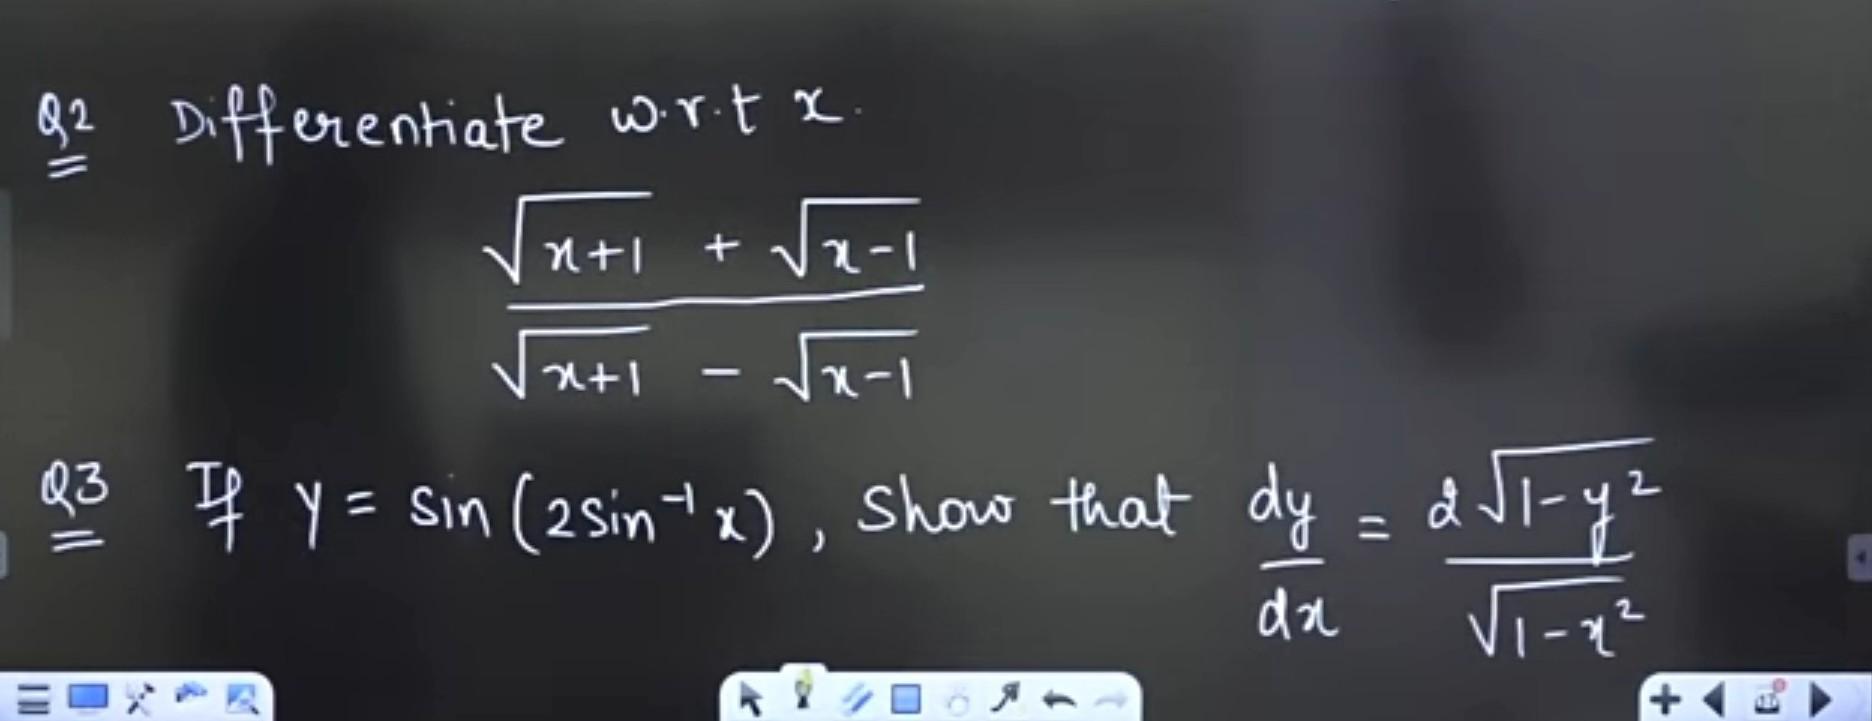 Q2 Differentiate w.r.t x.
√(x+1) + √(x-1)
√(x+1) - √(x-1)
Q3 If y = sin(2sin⁻¹x), Show that dy/dx = 2√(1-y²)/√(1-x²)